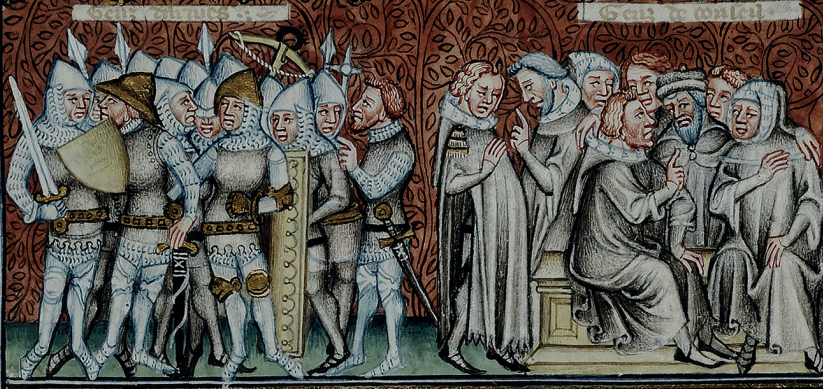 Genz darmes
Genz de conseil